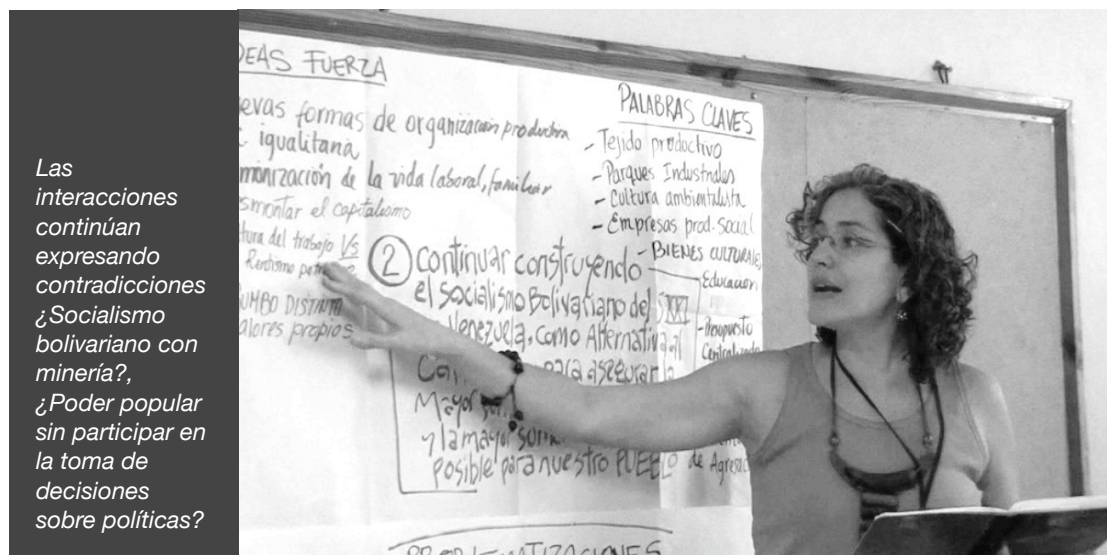 Las
interacciones
continúan
expresando
contradicciones
¿Socialismo
bolivariano con
minería?,
¿Poder popular
sin participar en
la toma de
decisiones
sobre políticas?
DEAS FUERZA
evas formas de organización productiva
igualitaria
manización de la vida laboral, familiar
smontar el capitalismo
tura del trabajo Vs
Rentismo
UMBO DISTINTO
alores propios
PALABRAS CLAVES
- Tejido productivo
- Parques Industriales
- Cultura ambientalista
- Empresas prod. social
- BIENES CULTURALES
Educación
- Presupuesto
② Continuar construyendo
el socialismo Bolivariano del S XXI
Venezuela, como Alternativa al
para asegurar la
Mayor
y la mayor
posible para nuestro PUEBLO
de
PROBLEMATIZACIONES